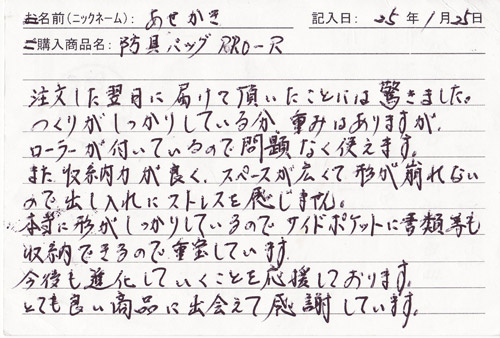 お名前(ニックネーム): あせかき 記入日: 25年1月25日
ご購入商品名: 防具バッグPRO-R
注文した翌日に届けて頂いたことには驚きました。
つくりがしっかりしている分、重みはありますが、
ローラーが付いているので問題なく使えます。
また、収納力が良く、スペースが広くて形が崩れない
ので出し入れにストレスを感じません。
本当に形がしっかりしているのでサイドポケットに書類等も
収納できるので重宝しています。
今後も進化していくことを応援しております。
とても良い商品に出会えて感謝しています。